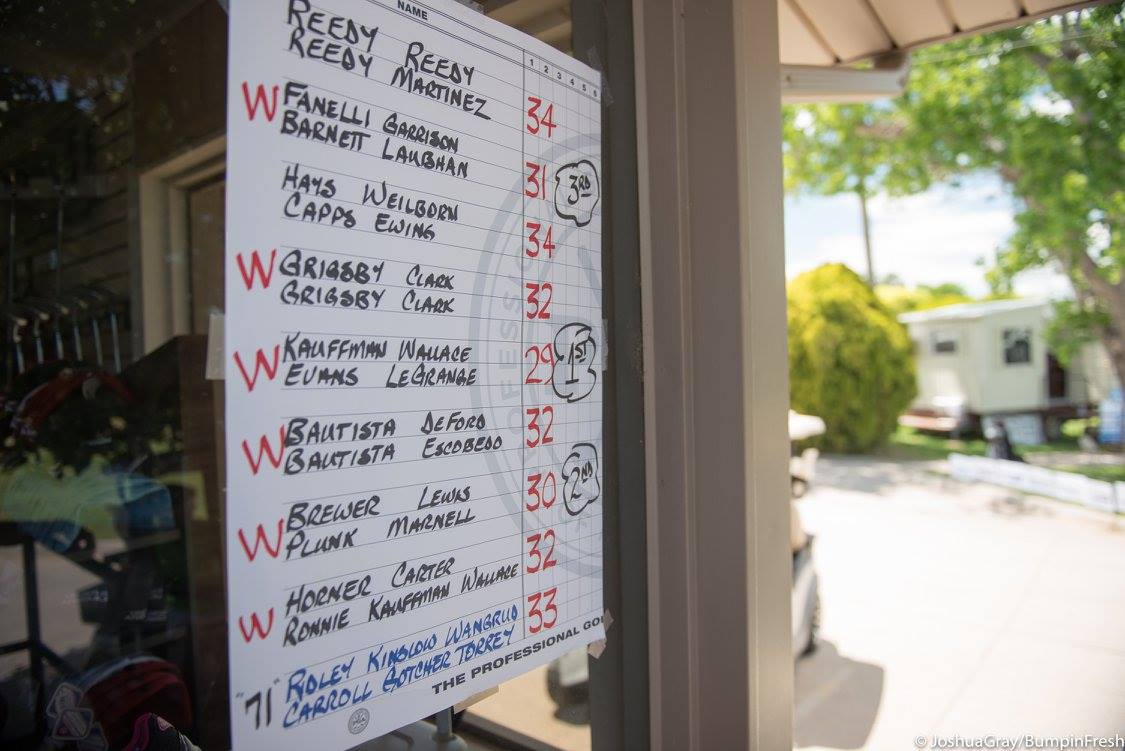 NAME
1 2 3 4 5 6
REEDY REEDY
REEDY MARTINEZ 34
W FANELLI GARRISON
BARNETT LAUBHAN 31 3RD
HAYS WEILBORN
CAPPS EWING 34
W GRIGSBY CLARK
GRIGSBY CLARK 32
W KAUFFMAN WALLACE
EVANS LEGRANGE 29 1ST
W BAUTISTA DEFORD
BAUTISTA ESCOBEDO 32
W BREWER LEWIS
PLUNK MARNELL 30 2ND
W HORNER CARTER
RONNIE KAUFFMAN WALLACE 32
"71" RIDLEY KINSLOW WANGRUD
CARROLL GOTCHER TORREY 33
THE PROFESSIONAL GO
OFESSIO
© JoshuaGray/BumpinFresh